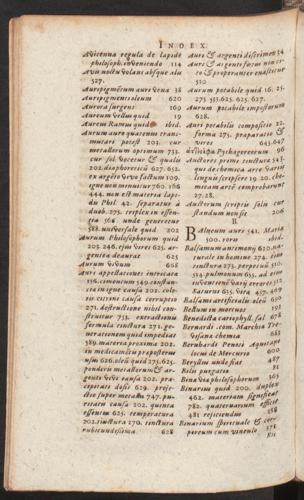 INDEX.
Avicenna regula de lapide
philosoph. inveniendo 114
Avis noctu volans absque alis
527.
Auripigmentum aure vena 38
Auripigmenti oleum 620
Aurora surgens 160
Aureum vellus quid 19
Aureus Ramus quid ibid.
Aurum auro quatenus transmutare
potest 203. cur
metallorum optimum 732.
cur sol vocetur & qualis
202. diaphoreticū 627. 652.
ex argēto vivo factum 109.
igne non minuitur 760. 766
444. non est materia lapidu
Phil. 42. separatur à
duob. 275.
568. unde generetur
588. universale quid 202
Aurum Philosophorum quid
203. 246. ejus vires 625. argentea
deaurat 625
Aurum vivum 668
Auri appellationes
156. cometenium 549. constantia
in igne causa 202. coloris
citrini causa corruptio
271. destructione nihil constituitur
733. extractionis
formula
271. generationem quid impediat
589. materia proxima 202.
in medicamētis præparatio
626. oleū quid 275. 625.
ponderis metallorum &
argenti vivi causa 202.
dosis 629. projectio
super metalla 747.
causa 202. quinta
essentia 625. temperatura
202. tinctura 270. tinctura
rubicundissima 628
Auri & argenti discrimen 54
Auri & argenti fusor non crocò
& properanter
520
Aurum potabile quid 16. 25.
275. 513. 625. 625. 627.
Aurum potabile impostorum
628.
Auri potabilis compositio 22
forma 275. præparatio &
vires 645. 647
Pythagoreorum 96
Auctores prime tincturæ 548.
que de chemica arte varia
lingua scripsère 19. 20. chemicam
arte comprobarunt
27. 28.
Auctorum scriptis solis
standum non est 206
B
Balneum auri 541. Maria
500. roris ibid.
Balsamum antemonij 620. naturale
in homine 274. eius
tinctura 275. perpetuū 510.
514. pulmonum 655. ad omne
inveteratū varij exper. 512
Saturni 655. vita 457. 469
Balsami artificialis oleū 650
Bectum in mortuis 195
Benedicta caryophyll. sal 678
Bernardi com. Marchia Trevisana
chemia 683
Bernhardi Penoti Aquæportæ
locus de Mercurio 600
Beryllus unde fiat 487
Bilis purgatio 81
Bina via philosophorum 365
Binarius quid 200. duplex
462. materiam significat
782. quaternarium efficit
481 rejiciendus 458
Binarium spirituale & corporeum
cum vinculo 578